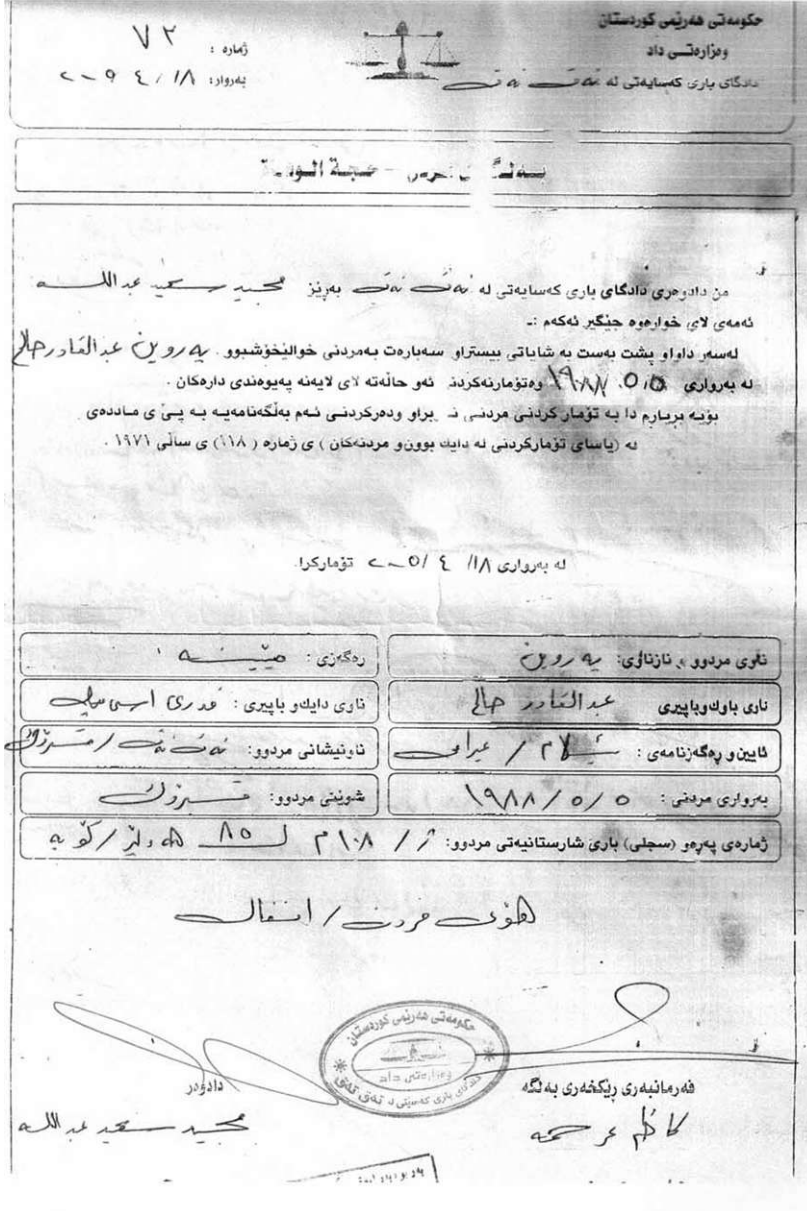 حکومەتی هەرێمی کوردستان
وەزارەتی داد
دادگای باری کەسایەتی لە تەق تەق
ژمارە : ٧٢
بەروار: ١٨/ ٤
حجة الوفاة
من دادوەری دادگای باری کەسایەتی لە تەق تەق بەڕێز مجید سعید عبدالله
ئەمەی لای خوارەوە جێگیر ئەکەم :ـ
لەسەر داواو پشت بەست بە شایاتی بیستراو سەبارەت بەمردنی خوالێخۆشبوو . پەروین عبدالقادر صالح
لە بەرواری ١٩٨٨/٥/٥ وەتۆمارنەکردنی ئەو حاڵەتە لای لایەنە پەیوەندی دارەکان .
بۆیە بڕیارم دا بە تۆمار کردنی مردنی ودەرکردنی ئەم بەڵگەنامەیە بە پێ ی ماددەی
لە (یاسای تۆمارکردنی لە دایك بوون و مردنەکان ) ی ژمارە ( ١١٨) ی ساڵی ١٩٧١ .
لە بەرواری ١٨/ ٤ /٢٠٠٥ تۆمارکرا.
ناوی مردوو و نازناوی: پەروین
ڕەگەزی : مێینە
ناوی باوك وباپیری عبدالقادر صالح
ناوی دایك و باپیری :
ئایین و ڕەگەزنامەی : ئیسلام / عیراقی
ناونیشانی مردوو: تەق تەق /
بەرواری مردنی : ١٩٨٨/٥/٥
شوێنی مردوو:
ژمارەی پەڕەو (سجلی) باری شارستانیەتی مردوو: ١٠٨ م ل ٨٥ هەولێر/کۆیە
هۆی مردن / انفال
حکومەتی هەرێمی کوردستان
وەزارەتی داد
دادگای باری کەسێتی لە تەق تەق
فەرمانبەری ڕێکخەری بەڵگە
دادوەر
مجید سعید عبدالله